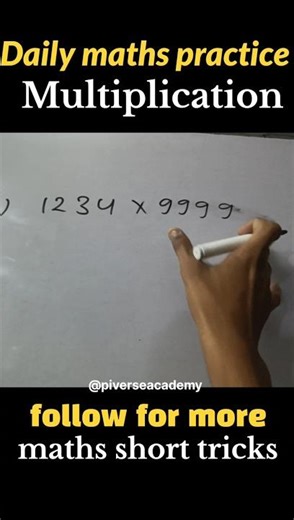 Daily maths practice
Multiplication
) 1234 × 9999
@piverseacademy
follow for more
maths short tricks